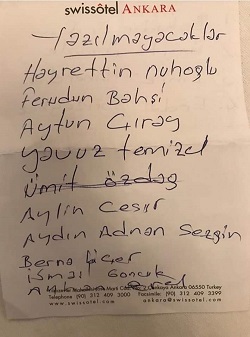 swissôtel ANKARA
Yazılmayacaklar
Hayrettin Nuhoğlu
Ferudun Bahşi
Aytun Çıray
Yavuz Temizel
Ümit Özdağ
Aylin Cesur
Aydın Adnan Sezgin
Berna
İsmail
Cankaya Ankara 06550 Turkey
Telephone (90) 312 409 3000 Facsimile: (90) 312 409 3399
www.swissotel.com ankara@swissotel.com